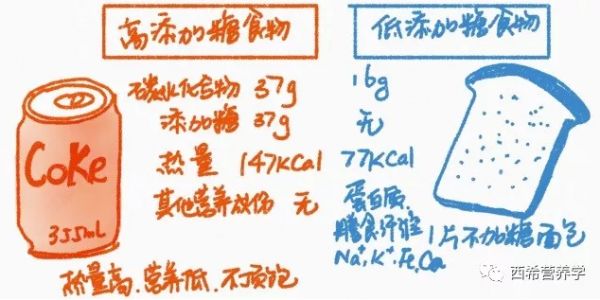 高添加糖食物
低添加糖食物
碳水化合物 37g
16g
添加糖 37g
无
热量 147KCal
77KCal
其他营养放伤 无
蛋白质、
膳食纤维
Na⁺,K⁺,Fe,Ca
Coke
355mL
1片不加糖面包
热量高、营养低、不顶饱
西希营养学